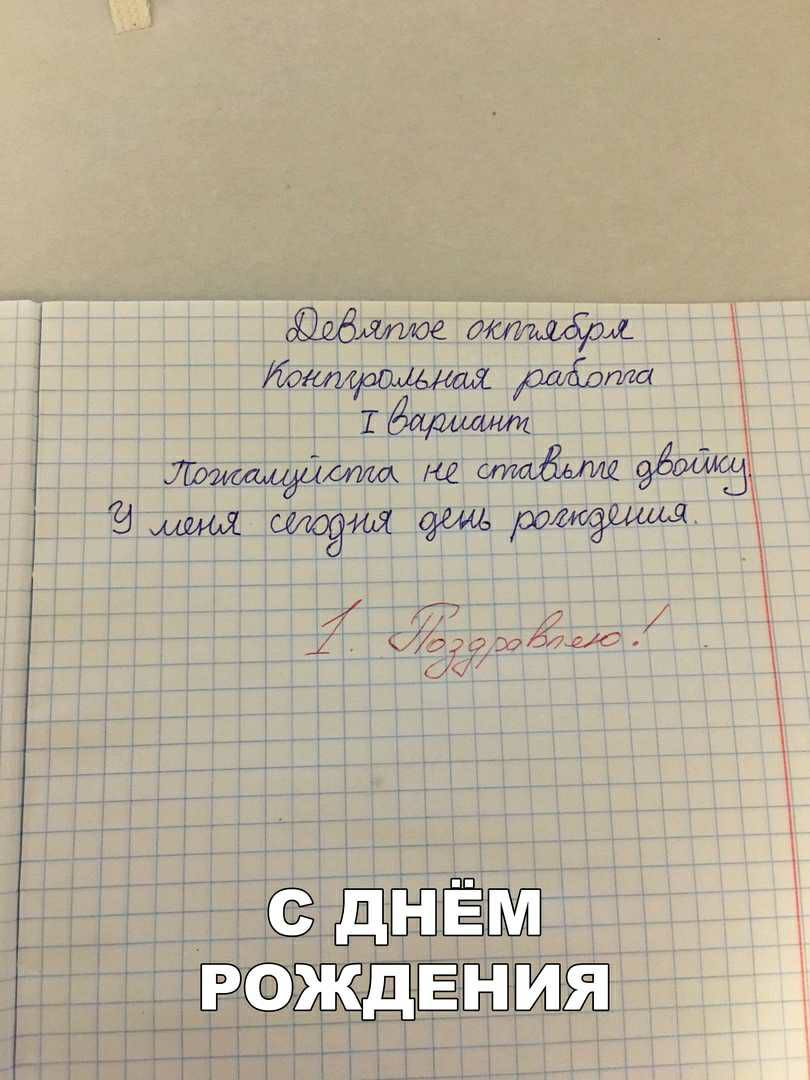 Девятое октября
Контрольная работа
I вариант
Пожалуйста не ставьте двойку.
У меня сегодня день рождения.
1. Поздравляю!
С ДНЁМ
РОЖДЕНИЯ